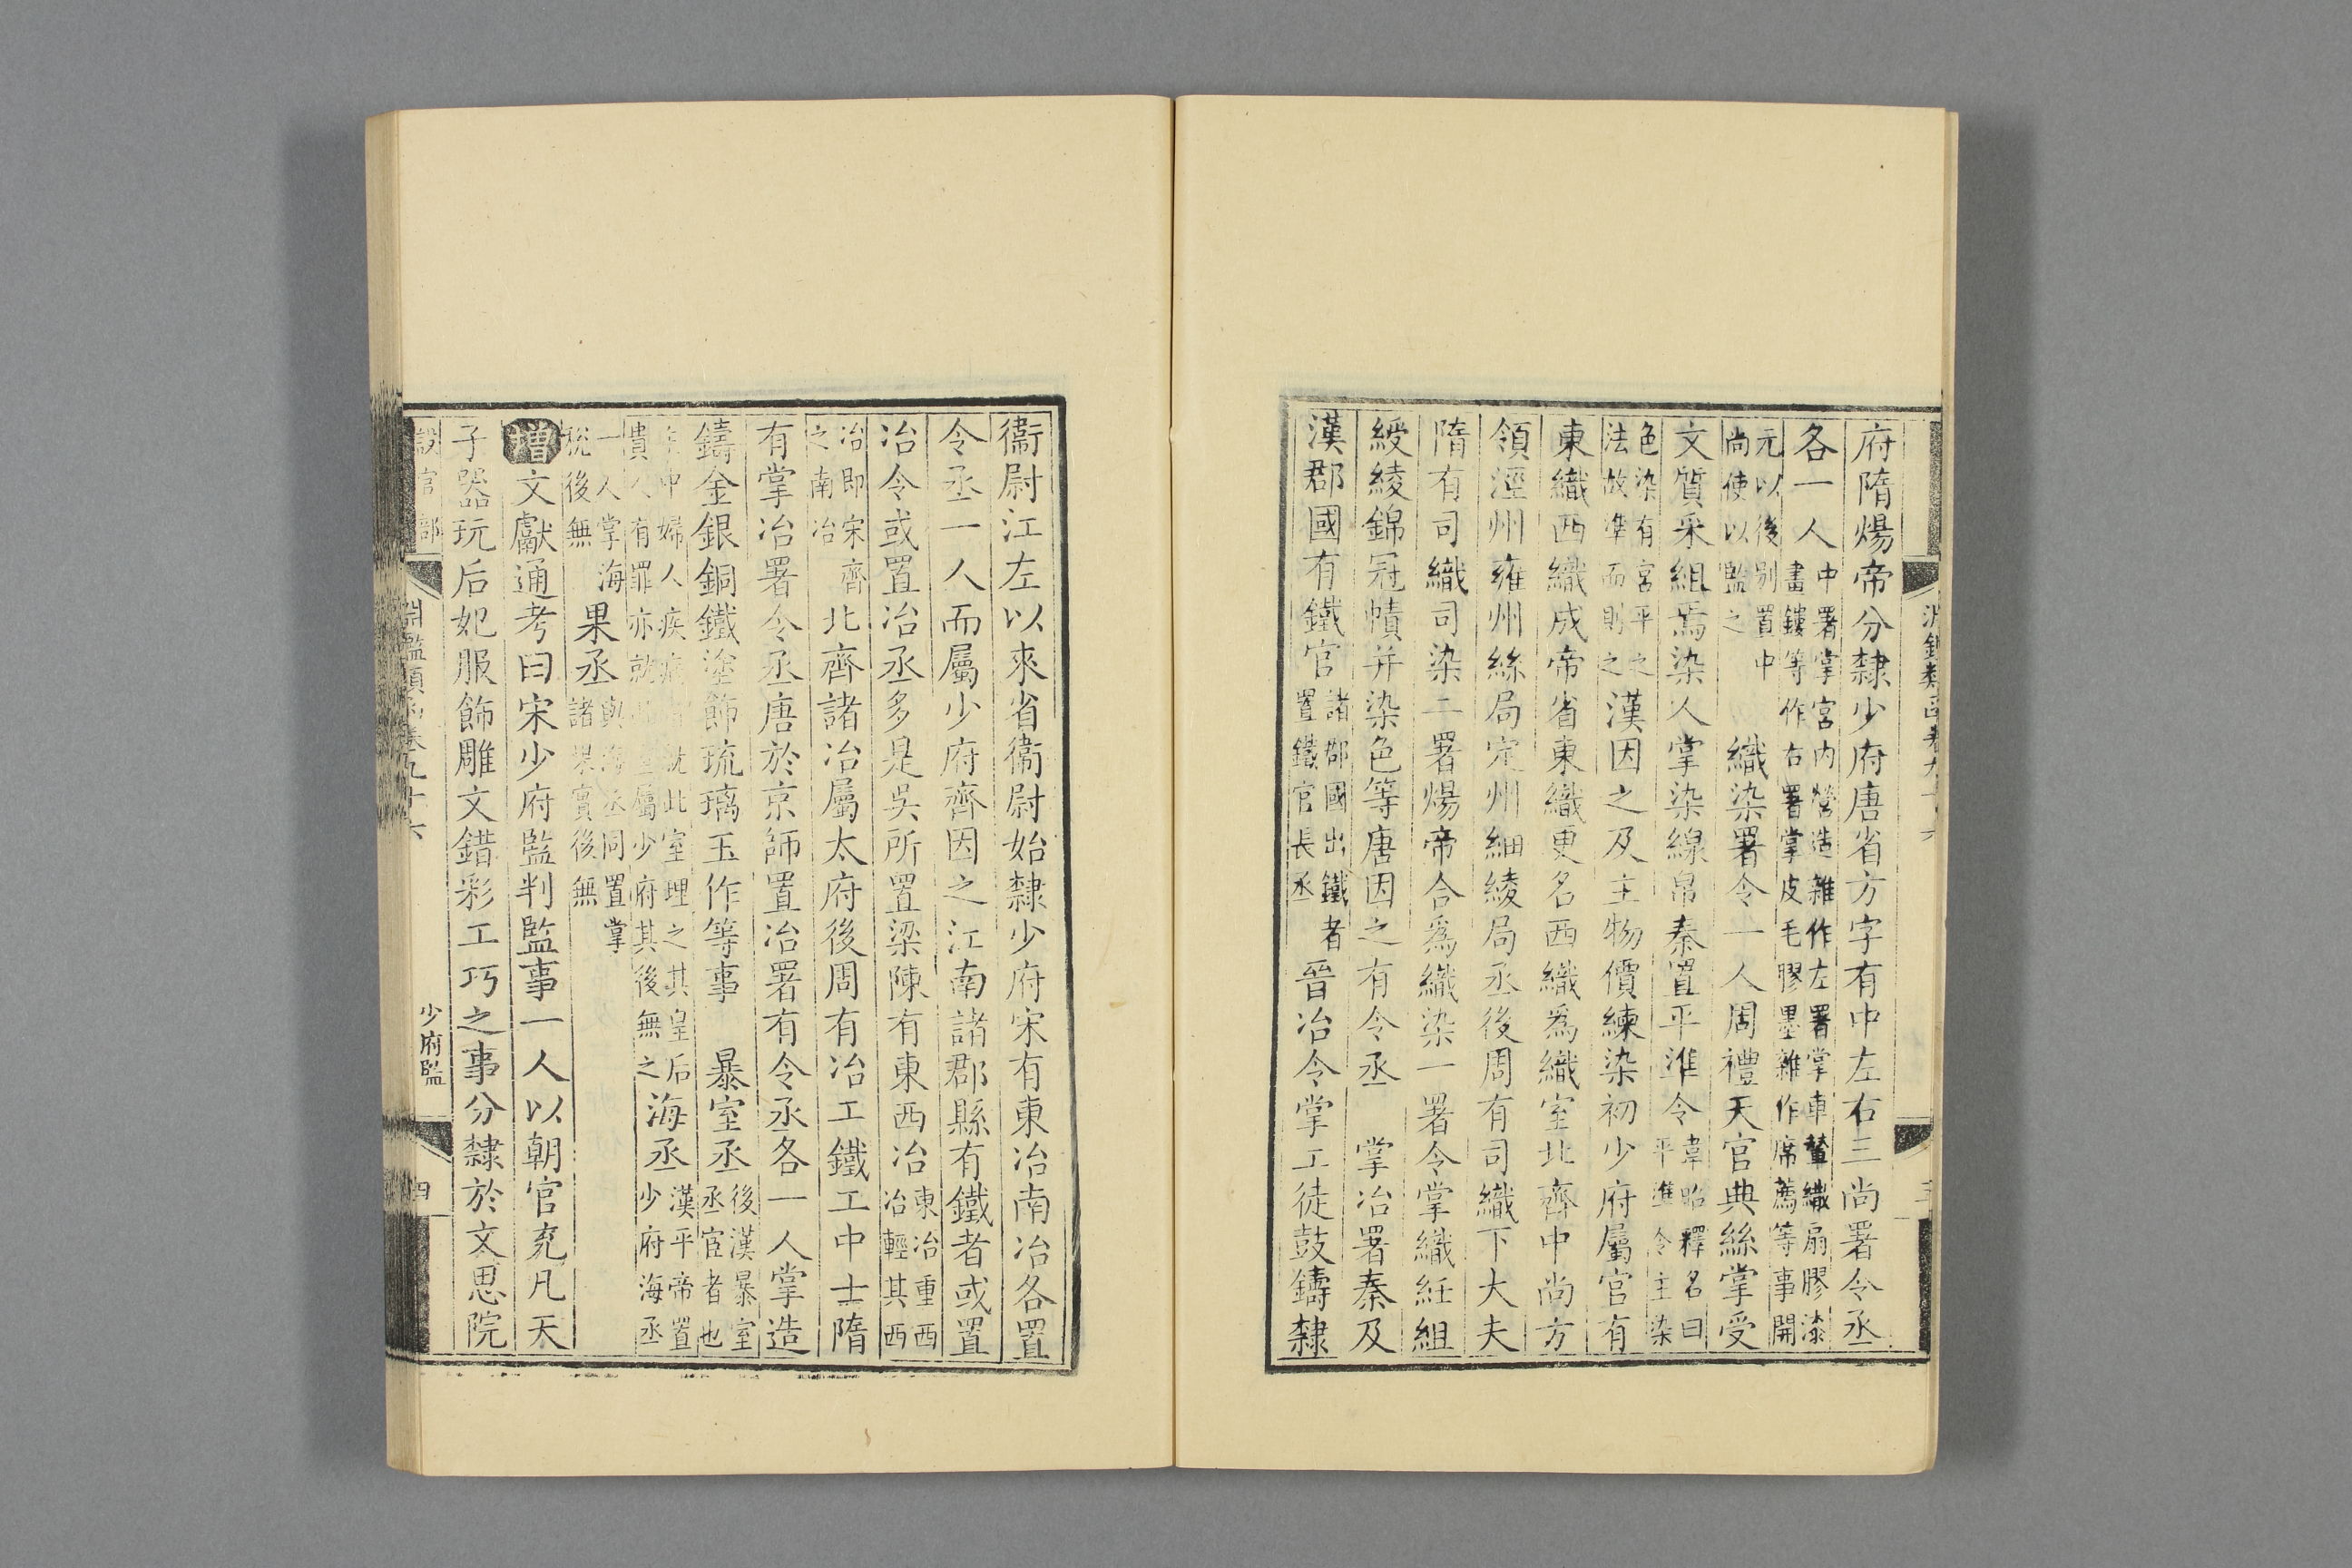 府隋煬帝分隸少府唐省方字有中左右三尚署令丞
各一人中署掌宮內營造雜作左署掌車輦繖扇膠漆畫鏤等作右署掌皮毛膠墨雜作席薦等事開
元以後別置中尚使以監之 織染署令一人周禮天官典絲掌受
文質采組焉染人掌染線帛秦置平準令韋昭釋名曰平準令主染
色染有宮平之法故準而則之漢因之及主物價練染初少府屬官有
東織西織成帝省東織更名西織爲織室北齊中尚方
領涇州雍州絲局定州細綾局丞後周有司織下大夫
隋有司織司染二署煬帝合爲織染一署令掌織紝組
綬綾錦冠幘并染色等唐因之有令丞 掌冶署秦及
漢郡國有鐵官諸郡國出鐵者置鐵官長丞晉冶令掌工徒鼓鑄隸
衞尉江左以來省衞尉始隸少府宋有東冶南冶各置
令丞一人而屬少府齊因之江南諸郡縣有鐵者或置
冶令或置冶丞多是吳所置梁陳有東西冶東冶重西冶輕其西
冶即宋齊之南冶北齊諸冶屬太府後周有冶工鐵工中士隋
有掌冶署令丞唐於京師置冶署有令丞各一人掌造
鑄金銀銅鐵塗飾琉璃玉作等事 暴室丞後漢暴室丞宦者也
主中婦人疾病者就此室理之其皇后貴人有罪亦就此室屬少府其後無之海丞漢平帝置少府海丞
一人掌海稅後無果丞與海丞同置掌諸果實後無
增文獻通考曰宋少府監判監事一人以朝官充凡天
子器玩后妃服飾雕文錯彩工巧之事分隸於文思院
設官部
淵鑑類函卷九十六
少府監
四